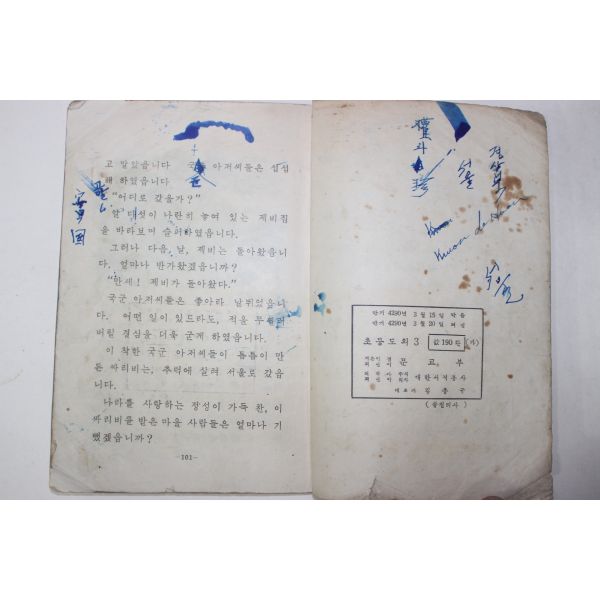 고 말았읍니다 국군 아저씨들은 섭섭
해 하였읍니다
"어디로 갔을가?"
알 대섯이 나란히 놓여 있는 제비집
을 바라보며 슬퍼하였읍니다.
그러나 다음, 날, 제비는 돌아왔읍니
다. 얼마나 반가왔겠읍니까?
"만세! 제비가 돌아왔다."
국군 아저씨들은 좋아라 날뛰었읍니
다. 어떤 일이 있드라도, 적을 무찔러
버릴 결심을 더욱 굳게 하였읍니다.
이 착한 국군 아저씨들이 틈틈이 만
든 싸리비는, 추럭에 실려 서울로 갔읍
니다.
나라를 사랑하는 정성이 가득 찬, 이
싸리비를 받은 마을 사람들은 얼마나 기
뻤겠읍니까?
-101-
서울
단기 4290년 3월 15일 박음
단기 4290년 3월 20일 펴냄
초등도의 3 값 190환
문교부
대한서적공사
대표자